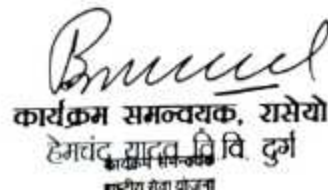 कार्यक्रम समन्वयक, रासेयो
हेमचंद यादव वि.वि. दुर्ग
कार्यक्रम समन्वयक
राष्ट्रीय सेवा योजना